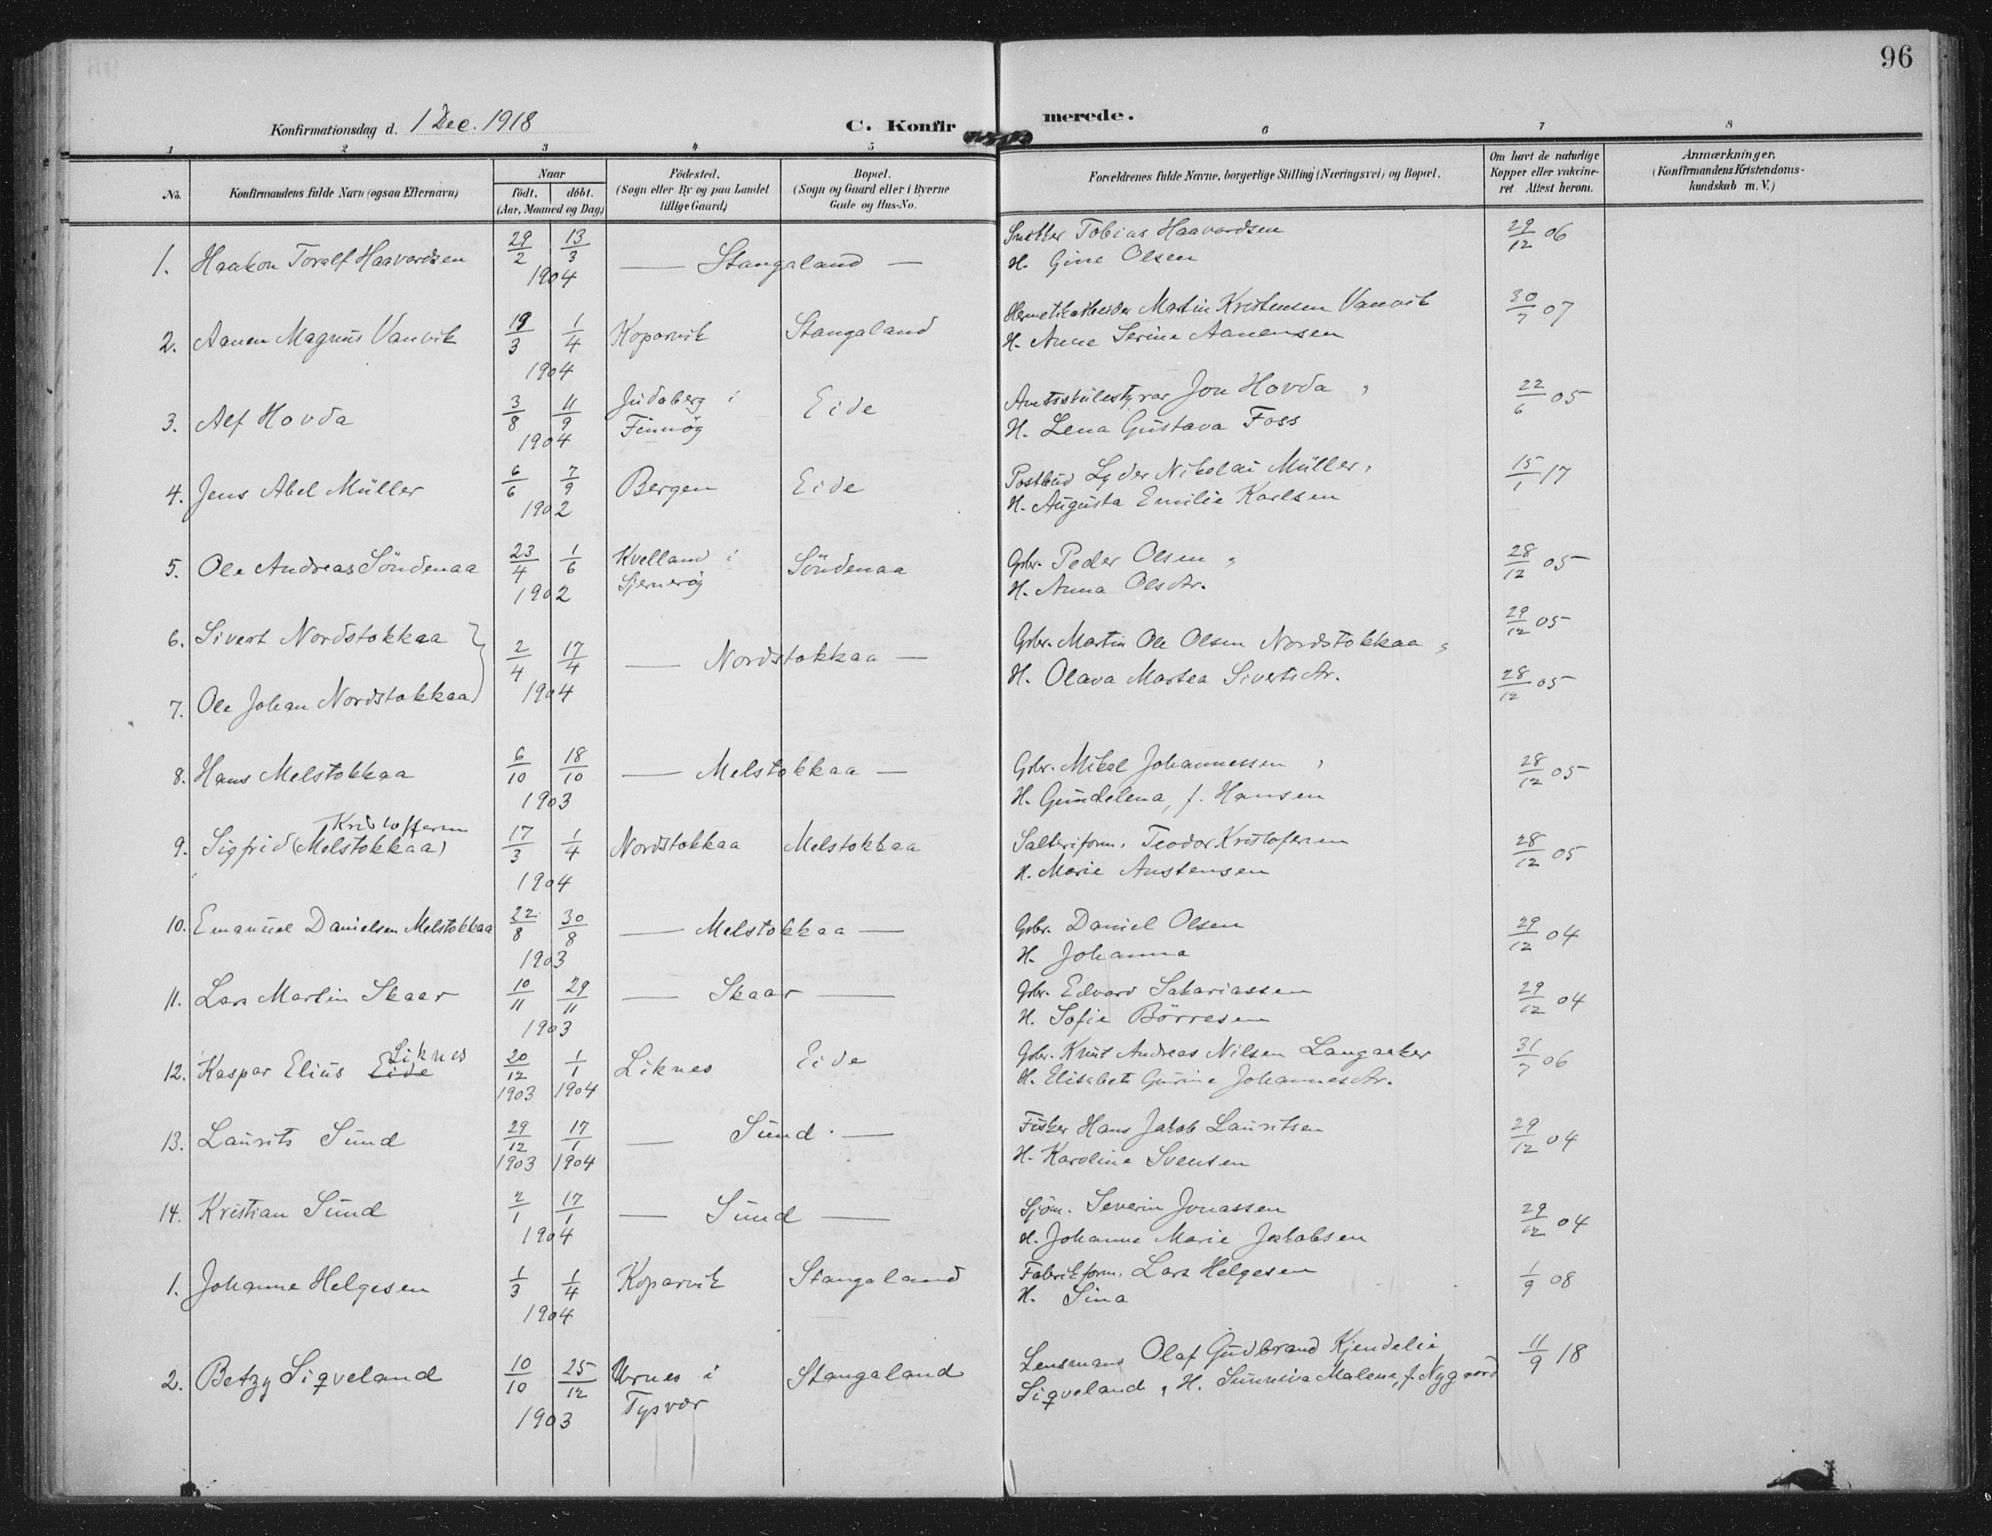 96
Konfirmationsdag d. 1 Dec. 1918
C. Konfirmerede.
1 2 3 4 5 6 7 8
No. Konfirmandens fulde Navn (ogsaa Efternavn) Naar født. døbt. (Aar, Maaned og Dag) Fødested. (Sogn eller By og paa Landet tillige Gaard) Bopæl. (Sogn og Gaard eller i Byerne Gade og Hus-No. Forældrenes fulde Navne, borgerlige Stilling (Næringsvei) og Bopæl. Om havt de naturlige Kopper eller vaccineret Attest herom. Anmærkninger. (Konfirmandens Kristendomskundskab m. V.)
1. Haakon Toralf Haavardsen 29/2 13/3 1904 — Stangaland — Snekker Tobias Haavardsen 29/12 06
H. Gine Olsen
2. Aanen Magnus Vanvik 19/3 1/4 1904 Kopervik Stangaland Hermetikarbeider Martin Kristensen Vanvik 30/7 07
H. Anne Serine Aanensen
3. Alf Hovda 3/8 11/9 1904 Judaberg i Finnøy Eide Amtsskulestyrar Jon Hovda, 22/6 05
H. Lena Gustava Foss
4. Jens Abel Müller 6/6 7/9 1902 Bergen Eide Postbud Lyder Nikolai Müller, 15/1 17
H. Augusta Emilie Karlsen
5. Ole Andreas Söndenaa 23/4 1/6 1902 Kvelland i Sjernerøy Söndenaa Gbr. Peder Olsen, 28/12 05
H. Anna Olsdtr.
6. Sivert Nordstokkaa 29/12 05
2/4 17/4 1904 — Nordstokkaa — Gbr. Martin Ole Olsen Nordstokkaa,
H. Olava Martea Sivertsdtr.
7. Ole Johan Nordstokkaa 28/12 05
8. Hans Melstokkaa 6/10 18/10 1903 — Melstokkaa — Gbr. Mikal Johannessen, 28/12 05
H. Gundelena, f. Hansen
9. Sigfrid Kristoffersen (Melstokkaa) 17/3 1/4 1904 Nordstokkaa Melstokkaa Salteriform. Teodor Kristofersen 28/12 05
H. Marie Austensen
10. Emanuel Danielsen Melstokkaa 22/8 30/8 1903 — Melstokkaa — Gbr. Daniel Olsen 29/12 04
H. Johanna
11. Lars Martin Skaar 10/11 29/11 1903 — Skaar — Gbr. Edvard Sakariassen 29/12 04
H. Sofie Börresen
12. Kaspar Elius Eide Liknes 20/12 1903 1/1 1904 Liknes Eide Gbr. Knut Andreas Nilsen Langaaker 31/7 06
H. Elisabeth Gurine Johannesdtr.
13. Laurits Sund 29/12 1903 17/1 1904 — Sund — Fisker Hans Jakob Lauritsen 29/12 04
H. Karoline Svensen
14. Kristian Sund 2/1 17/1 1904 — Sund — Sjøm. Severin Jonassen 29/12 04
H. Johanne Marie Jakobsen
1. Johanne Helgesen 1/3 1/4 1904 Kopervik Stangaland Fabrikform. Lars Helgesen 1/9 08
H. Sina
2. Betzy Siqveland 10/10 25/12 1903 Urnes i Tysvær Stangaland Lensmand Olaf Gudbrand Kjendelie 11/9 18
Siqveland, H. Sunneiva Malene, f. Nygaard